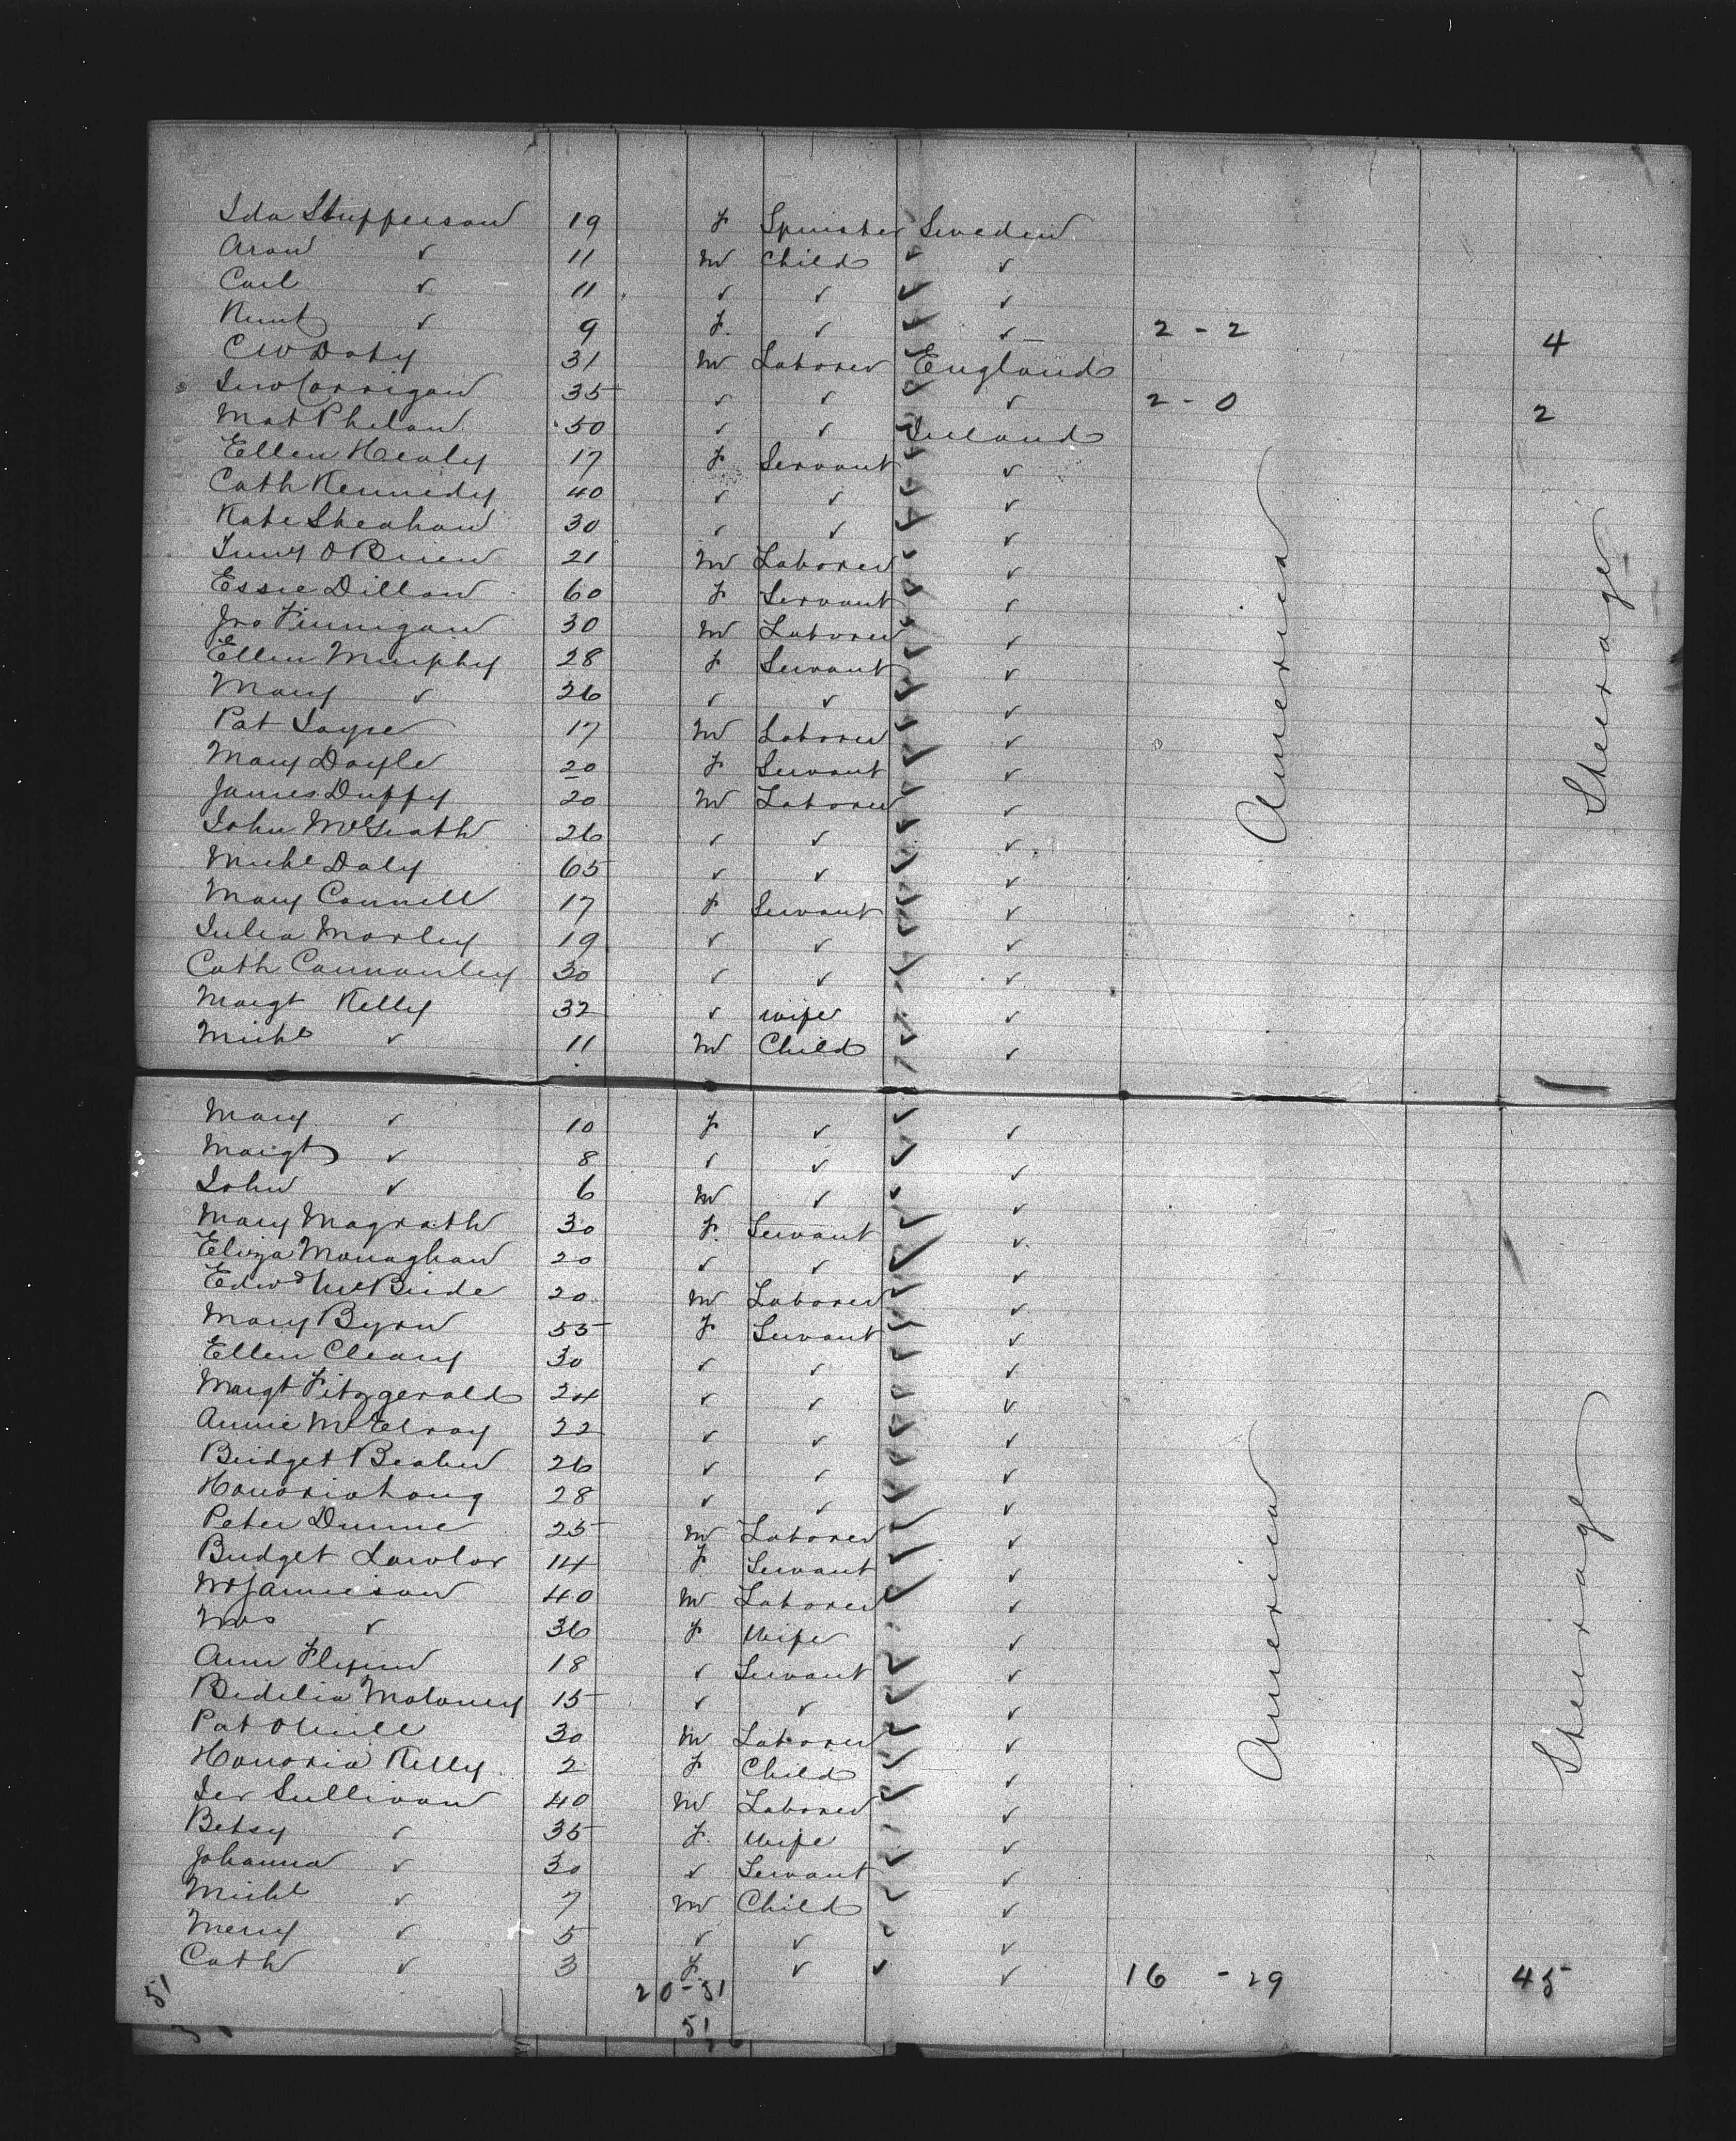 Ida Stupperson 19 F Spinster Sweden
Aron ✓ 11 M Child ✓ ✓
Carl ✓ 11 ✓ ✓ ✓
Knut ✓ 9 F. ✓ ✓ 2 - 2 4
CW Doty 31 M Laborer England
Jno Corrigan 35 ✓ ✓ ✓ 2 - 0 2
Mat Phelan 50 ✓ ✓ Ireland
Ellen Healy 17 F Servant ✓
Cath Kennedy 40 ✓ ✓ ✓
Kate Sheahan 30 ✓ ✓ ✓
O'Brien 21 M Laborer ✓
Essie Dillon 60 F Servant ✓
Jno Finnigan 30 M Laborer ✓
Ellen Murphy 28 F Servant ✓
Mary ✓ 26 ✓ ✓ ✓
Pat Joyce 17 M Laborer ✓
Mary Doyle 20 F Servant ✓
James Duffy 20 M Laborer ✓
John McGrath 26 ✓ ✓ ✓
Michl Daly 65 ✓ ✓ ✓
Mary Connell 17 F Servant ✓
Julia Morley 19 ✓ ✓ ✓
Cath Connanley 30 ✓ ✓ ✓
Margt Kelly 32 ✓ wife ✓
Michl ✓ 11 M Child ✓
America
Steerage
Mary ✓ 10 F ✓ ✓
Margt ✓ 8 ✓ ✓ ✓
John ✓ 6 M ✓ ✓
Mary Magrath 30 F. Servant ✓
Eliza Monaghan 20 ✓ ✓ ✓
Edwd McBride 20 M Laborer ✓
Mary Byrn 55 F Servant ✓
Ellen Cleary 30 ✓ ✓ ✓
Margt Fitzgerald 24 ✓ ✓ ✓
Annie McElroy 22 ✓ ✓ ✓
Bridget Beahn 26 ✓ ✓ ✓
Honoria Long 28 ✓ ✓ ✓
Peter Dunne 25 M Laborer ✓
Bridget Lawlor 14 F Servant ✓
Mr Jamieson 40 M Laborer ✓
Mrs ✓ 36 F Wife ✓
Ann Flynn 18 ✓ Servant ✓
Bedelia Moloney 15 ✓ ✓ ✓
Pat ONeill 30 M Laborer ✓
Honoria Kelly 2 F Child ✓
Jer Sullivan 40 M Laborer ✓
Betsy ✓ 35 F. Wife ✓
Johanna ✓ 30 ✓ Servant ✓
Michl ✓ 7 M Child ✓
Merry ✓ 5 ✓ ✓ ✓
Cath ✓ 3 F. ✓ ✓ ✓ 16 - 29 45
America
Steerage
51 20-31
51